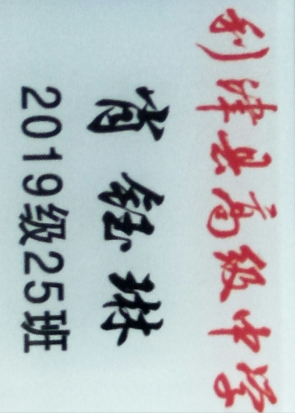 利津县高级中学
肖钰琳
2019级25班